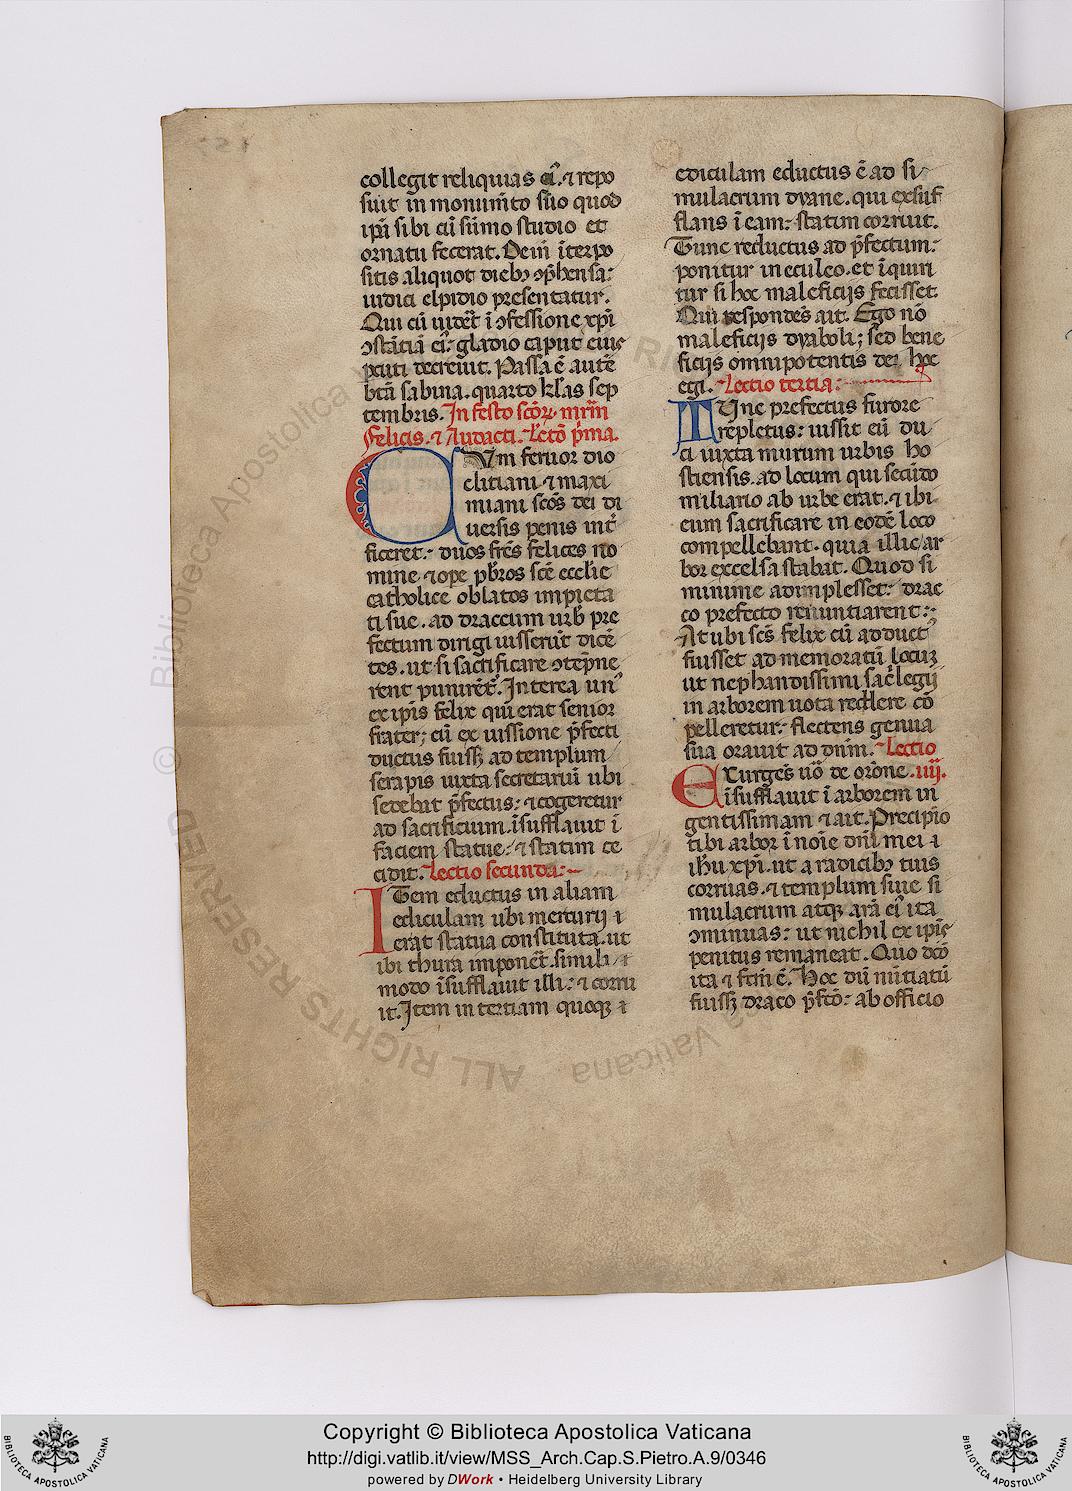 collegit reliquias ei᷒. ⁊ repo
suit in monum̄to suo quod
ip̄i sibi cū sūmo studio et
ornatu fecerat. Dein̄ īterpo
sitis aliquot dieb; ꝯp̄hensa:
iudici elpidio presentatur.
Qui cū uider̄t ī ꝯfessione xp̄i
ꝯstātiā ei᷒: gladio caput eius
ꝑcuti decreuit. Passa ē autē
btā sabina. quarto kl̄as sep
tembris. In festo sc̄oꝝ mr̄m
felicis. ⁊ Audacti. Lcto p̄ma.
CVm feruor dio
clitiani ⁊ maxi
miani sc̄os dei di
uersis penis int̄
ficeret. duos fr̄es felices no
mine ⁊ ope p̄br̄os sc̄e eccl̄ie
catholice oblatos impieta
ti sue. ad draccum urb᷒ pre
fectum dirigi iusserūt dicē
tes. ut si sacrificare ꝯtēpne
rent punirēt᷒. Interea un᷒
ex ip̄is felix qui erat senior
frater; cū ex iussione p̄fecti
ductus fuiss; ad templum
serapis iuxta secretariū ubi
sedebat p̄fectus: ⁊ cogeretur
ad sacrificium. īsufflauit ī
faciem statue: ⁊ statim ce
cidit. Lectio secunda:
ITem eductus in aliam
ediculam ubi mercurij
erat statua constituta. ut
ibi thura imponer̄t. simili
modo īsufflauit illi: ⁊ corru
it. Item in tertiam quoq;
ediculam eductus ē ad si
mulacrum dyane. qui exsuf
flans ī eam: statim corruit.
Tunc reductus ad p̄fectum:
ponitur in eculeo. et īquiri
tur si hoc maleficijs fecisset.
Qui respondēs ait. Ego nō
maleficijs dyaboli; sed bene
ficijs omnipotentis dei hoc
egi. Lectio tertia:
TUnc prefectus furore
repletus: iussit eū du
ci iuxta murum urbis ho
stiensis. ad locum qui secūdo
miliario ab urbe erat. ⁊ ibi
eum sacrificare in eodē loco
compellebant. quia illic ar
bor excelsa stabat. Quod si
minime adimplesset: drac
co prefecto renuntiarent:
At ubi sc̄s felix cū adduct᷒
fuisset ad memoratū locuꝫ
ut nephandissimi sac̄legij
in arborem uota reddere cō
pelleretur: flectens genua
sua orauit ad dn̄m. Lectio
EXurgēs ūo de or̄one. iiij.
īsufflauit ī arborem in
gentissimam ⁊ ait. Precipio
tibi arbor ī noīe dn̄i mei
ih̄u xp̄i. ut a radicib; tuis
corruas. ⁊ templum siue si
mulacrum atq; arā ei᷒ ita
ꝯminuas: ut nichil ex ip̄is
penitus remaneat. Quo dc̄o
ita ⁊ fc̄m ē. Hoc dū nūtiatū
fuiss; draco p̄fc̄o: ab officio
© Biblioteca Apostolica Vaticana
ALL RIGHTS RESERVED
Copyright © Biblioteca Apostolica Vaticana
http://digi.vatlib.it/view/MSS_Arch.Cap.S.Pietro.A.9/0346
powered by DWork • Heidelberg University Library
BIBLIOTECA APOSTOLICA VATICANA
BIBLIOTECA APOSTOLICA VATICANA